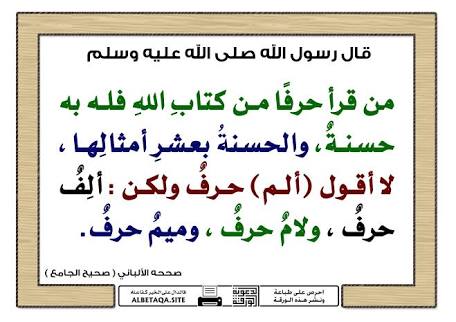 قال رسول الله صلى الله عليه وسلم
من قرأ حرفًا من كتابِ اللهِ فله به
حسنةٌ ، والحسنةُ بعشرِ أمثالِها ،
لا أقول (ألم) حرفٌ ولكن : ألِفٌ
حرفٌ ، ولامٌ حرفٌ ، وميمٌ حرفٌ .
صححه الألباني ( صحيح الجامع )
احرص على طباعة
ونشر هذه الورقة
الدال على الخير كفاعله
ALBETAQA.SITE